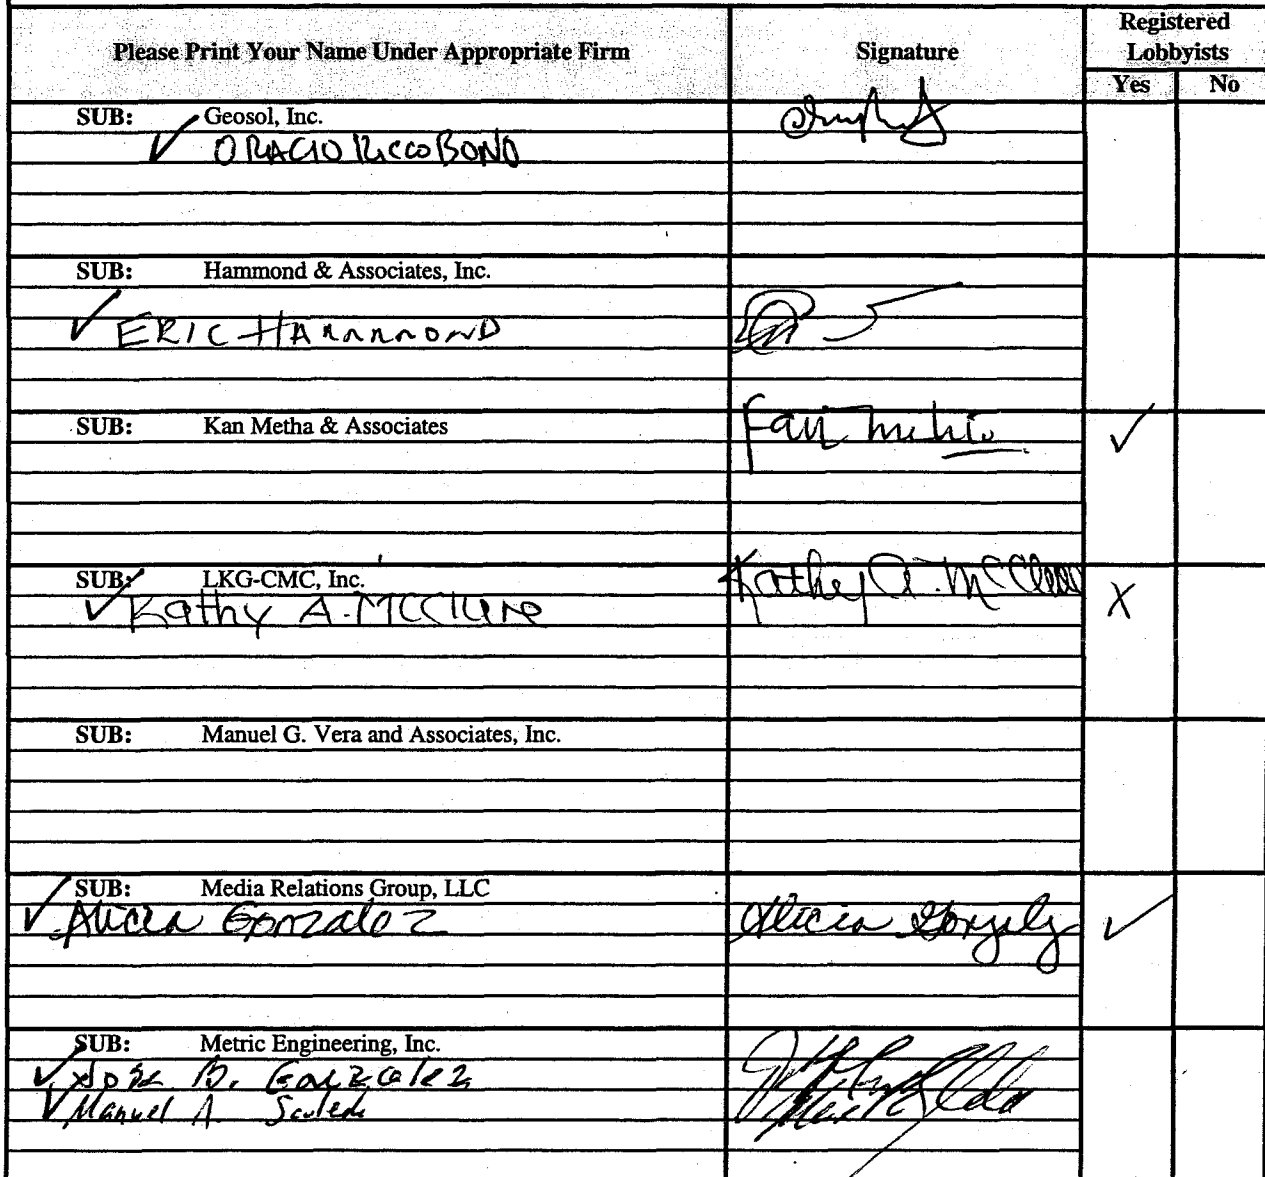 Please Print Your Name Under Appropriate Firm Signature Registered Lobbyists
Yes No
SUB: Geosol, Inc.
✓ ORACIO RICCOBONO
SUB: Hammond & Associates, Inc.
✓ ERIC HAMMOND
SUB: Kan Metha & Associates ✓
SUB: LKG-CMC, Inc. Kathy A. McClure
✓ Kathy A. McClure X
SUB: Manuel G. Vera and Associates, Inc.
SUB: Media Relations Group, LLC
✓ Alicia Gonzalez Alicia Gonzalez ✓
SUB: Metric Engineering, Inc.
✓ Jose B. Gonzalez
✓ Manuel A.